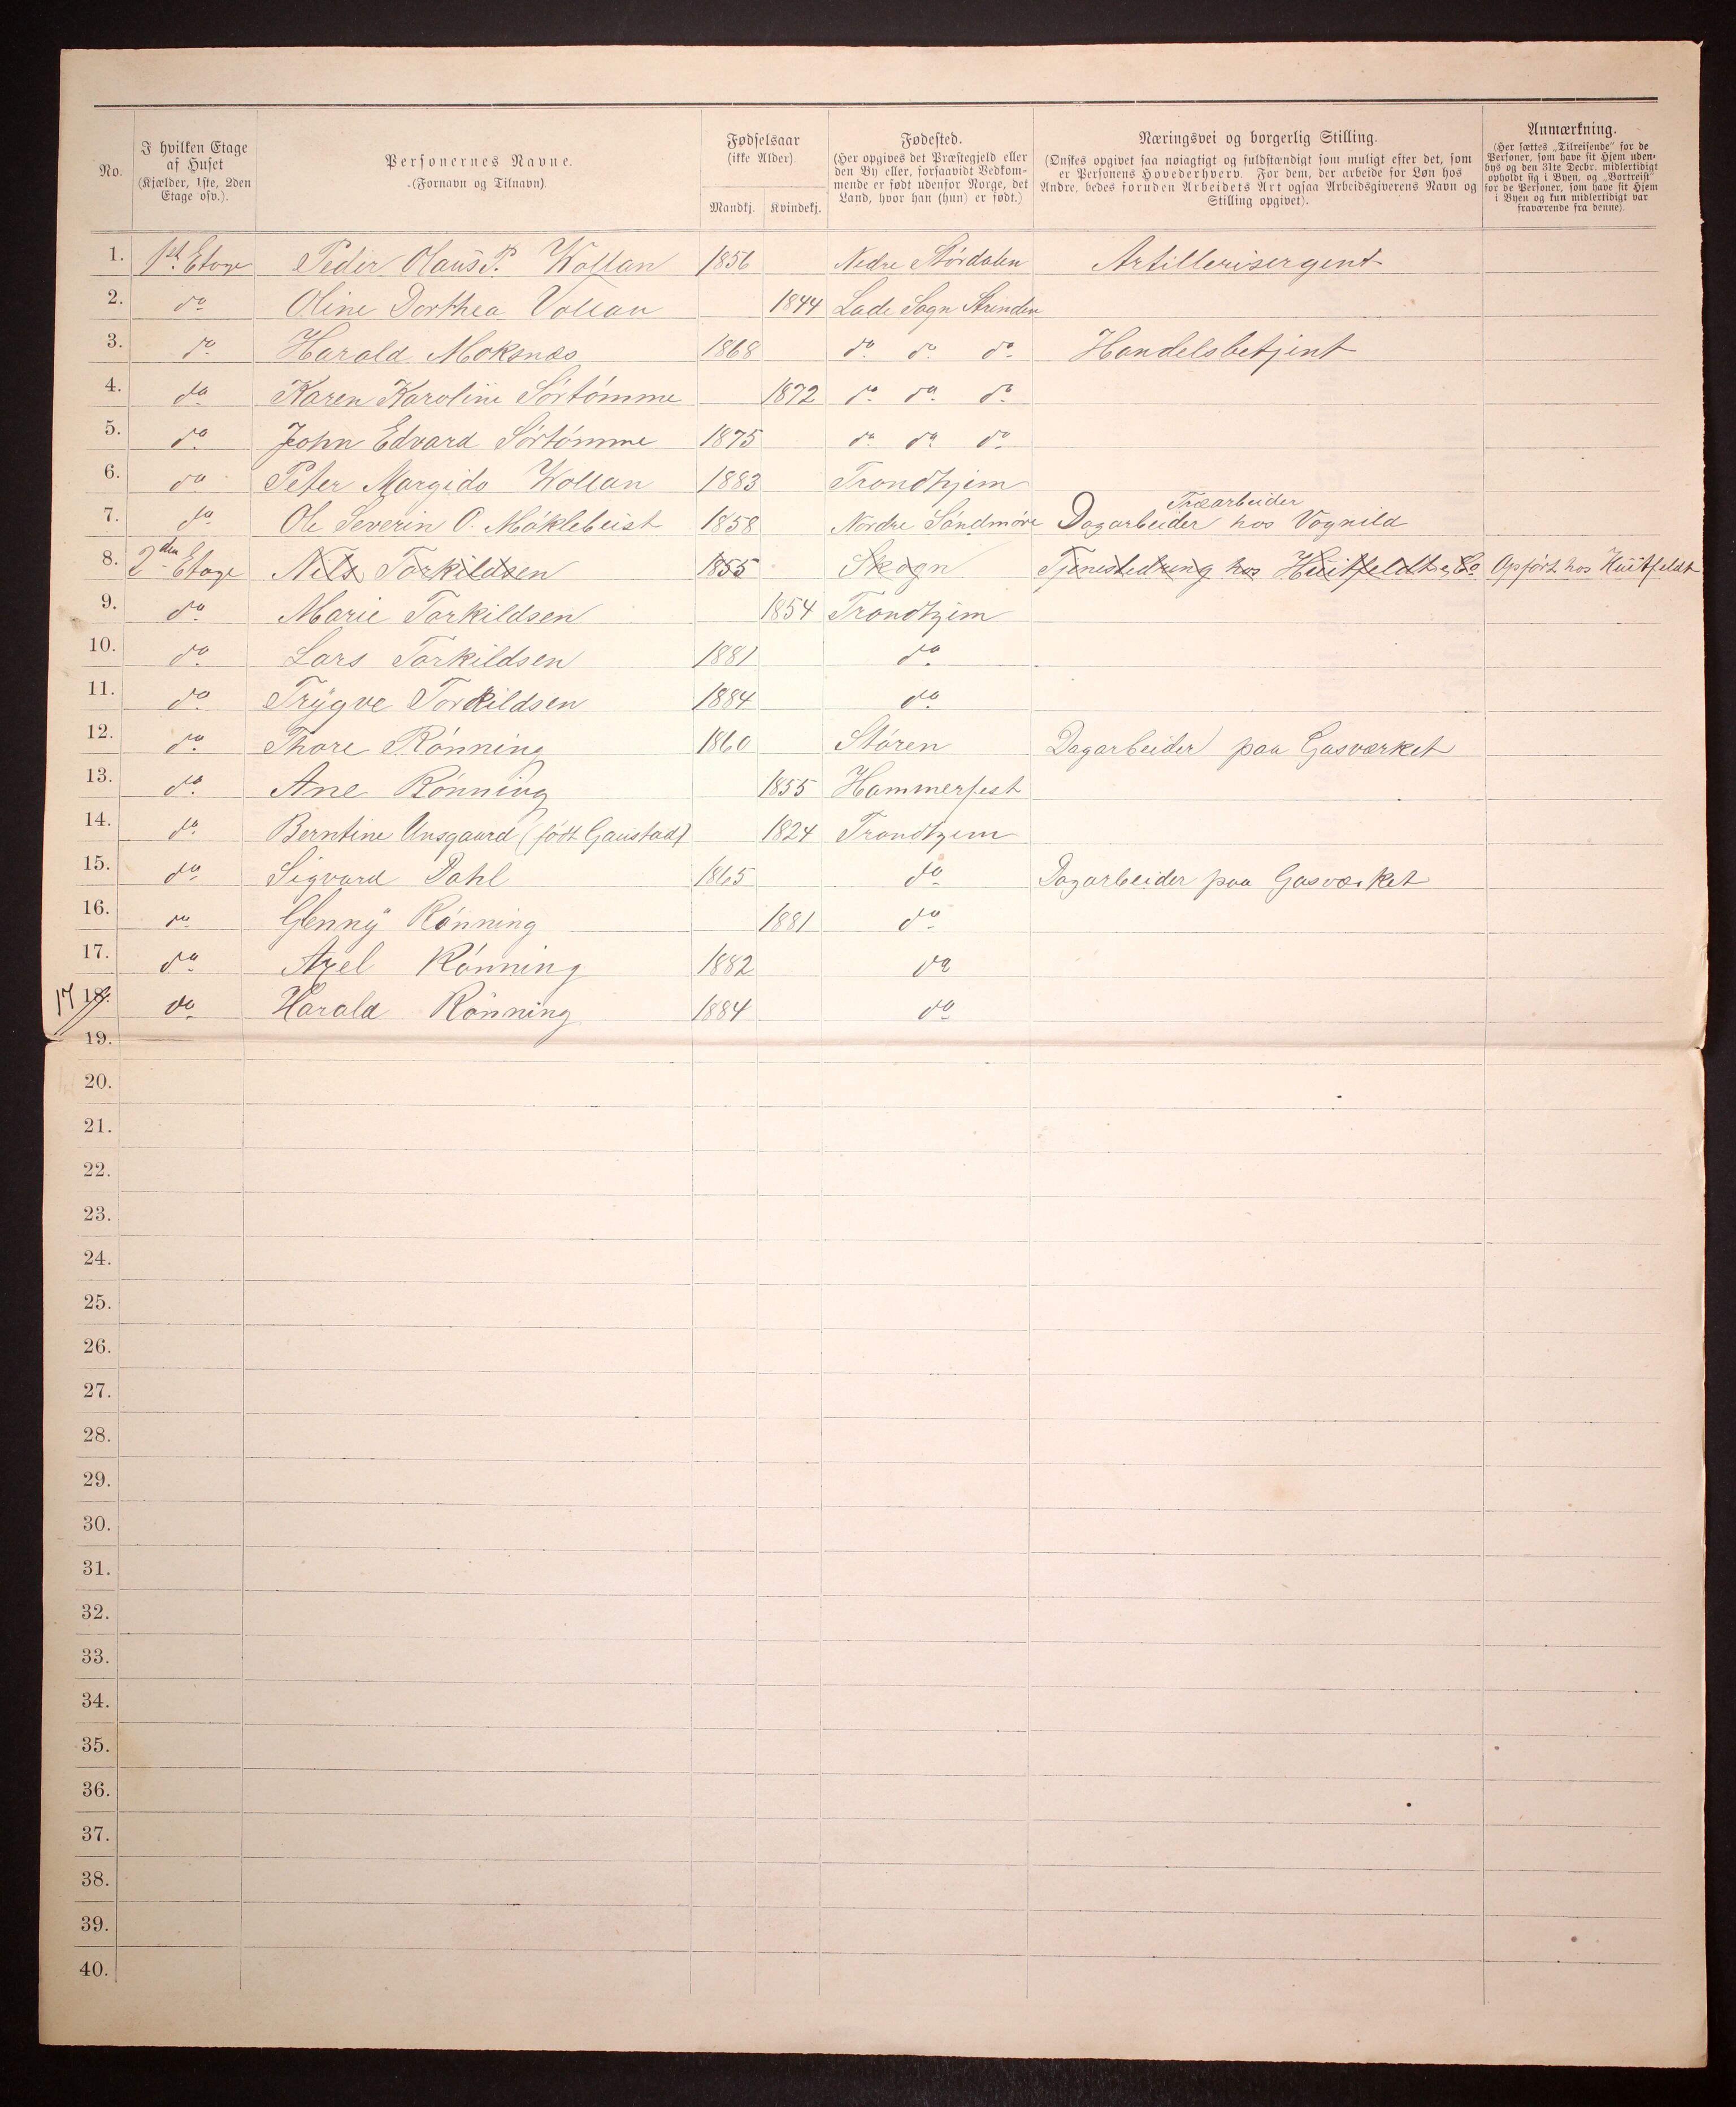 No.
I hvilken Etage af Huset (Kjælder, 1ste, 2den Etage osv.).
Personernes Navne. (Fornavn og Tilnavn)
Fødselsaar (ikke Alder)
Mandkj. Kvindekj.
Fødested. (Her opgives det Præstegjeld eller den By eller, forsaavidt Vedkommende er født udenfor Norge, det Land, hvor han (hun) er født.)
Næringsvei og borgerlig Stilling. (Ønskes opgivet saa nøiagtigt og fuldstændigt som muligt efter det, som er Personens Hovederhverv. For dem, der arbeide for Løn hos Andre, bedes foruden Arbeidets Art ogsaa Arbeidsgiverens Navn og Stilling opgivet).
Anmærkning. (Her sættes „Tilreisende" for de Personer, som have sit Hjem udenbys og den 31te Decbr. midlertidigt opholdt sig i Byen, og „Bortreist" for de Personer, som have sit Hjem i Byen og kun midlertidigt var fraværende fra denne).
1. 1st Etage Peder Olaus P. Wollan 1856 Nedre Størdalen Artillerisergent
2. do Oline Dorthea Vollan 1844 Lade Sogn Strinden
3. do Harald Moksnes 1868 do do do Handelsbetjent
4. do Karen Karoline Sørtømme 1872 do do do
5. do John Edvard Sørtømme 1875 do do do
6. do Peter Margido Wollan 1883 Trondhjem
Træarbeider
7. do Ole Severin O. Møklebust 1858 Nordre Søndmøre Dagarbeider hos Vognild
8. 2den Etage Nils Torkildsen 1855 Skogn Tjenestedreng hos Huitfeldt & Co Opført hos Huitfeldt
9. do Marie Torkildsen 1854 Trondhjem
10. do Lars Torkildsen 1881 do
11. do Trygve Torkildsen 1884 do
12. do Thore Rønning 1860 Støren Dagarbeider paa Gasværket
13. do Ane Rønning 1855 Hammerfest
14. do Berntine Unsgaard (født Gaustad) 1824 Trondhjem
15. do Sigvard Dahl 1865 do Dagarbeider paa Gasværket
16. do Gjenny Rønning 1881 do
17. do Axel Rønning 1882 do
17 18. do Harald Rønning 1884 do
19.
20.
21.
22.
23.
24.
25.
26.
27.
28.
29.
30.
31.
32.
33.
34.
35.
36.
37.
38.
39.
40.